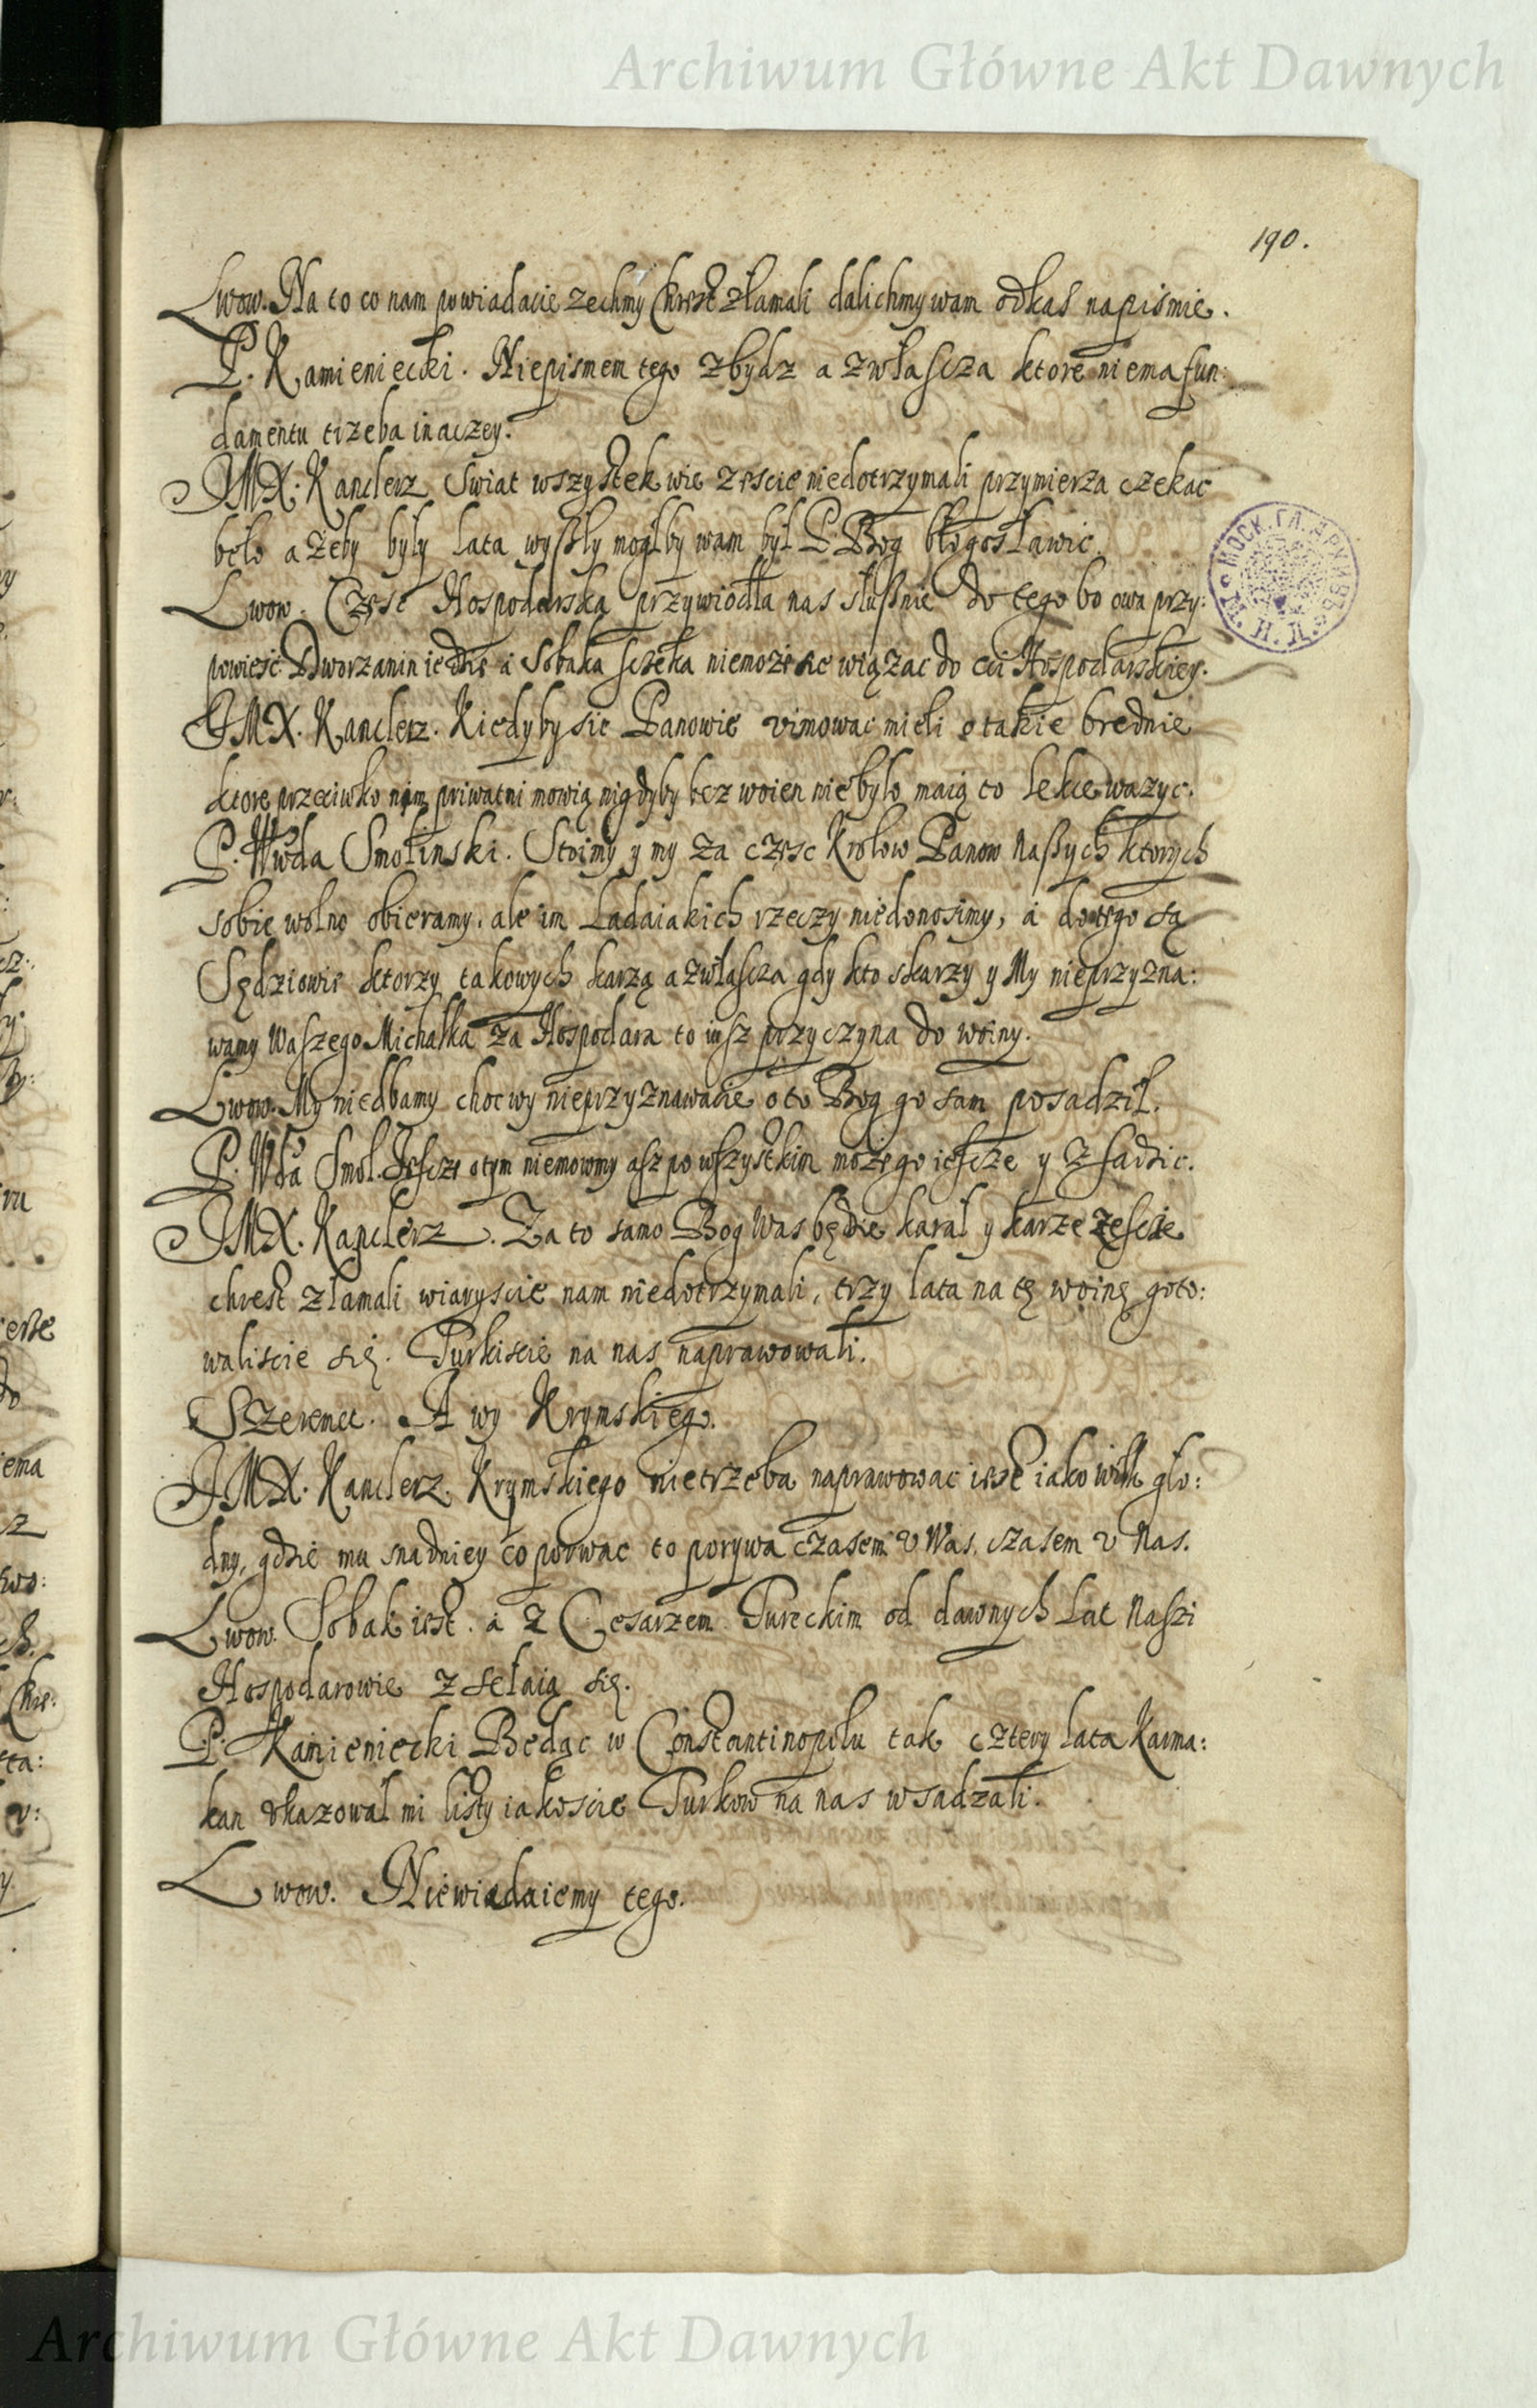 Archiwum Główne Akt Dawnych
190.
Lwow. Na to co nam powiadacie zechmy Chrest złamali dalichmy wam odkas napismie.
P. Kamieniecki. Niepismem tego zbydz a zwłascza ktore niema fun:
damentu trzeba inaczey.
JMX. Kanclerz Swiat wszystek wie zescie niedotrzymali przymierza czekac
beło a zeby były lata wyszły mogłby wam był P. Bog błogosławic.
Lwow. Częsc Hospodarska przywiodła nas słusznie do tego bo owa przy:
powiesc Dworzanin iedzie a Sobaka sczeka niemoże sie wiązac do czi Hospodarskiey.
JMX. Kanclerz. Kiedyby sie Panowie vimowac mieli o takie brednie
ktore przeciwko nim priwatni mowią nigdyby bez woien niebyło maią to lekce wazyc.
P. Wwda Smolinski. Stoimy y my za częsc Krolow Panow Naszych ktorych
sobie wolno obieramy. ale im Ladaiakich rzeczy niedonosimy, a dotego są
Sędziowie ktorzy takowych karzą a zwłascza gdy kto skarzy y My nieprzyzna:
wamy Waszego Michałka za Hospodara to iusz przyczyna do woiny.
Lwow. My niedbamy choc wy nieprzyznawacie oto Bog go sam posadził.
P. Wda Smol. Jescze otym niemowmy asz po wszystkim może go iescze y zsadzic.
JMX. Kanclerz. Za to samo Bog Was będzie karał y karze żescie
chrest złamali wiaryscie nam niedotrzymali, trzy lata na tę woinę goto:
waliscie się. Turkiscie na nas naprawowali.
Szeremet. A wy Krymskiego.
JMX. Kanclerz. Krymskiego nietrzeba naprawowac iest iako wilk gło:
dny, gdzie mu snadniey co porwac to porywa czasem v Was, czasem v Nas.
Lwow. Sobak iest. a z Cesarzem Tureckim od dawnych Lat Naszi
Hospodarowie zsełaią się.
P. Kamieniecki Będąc w Constantinopolu tak cztery lata Kaima:
kan vkazował mi listy iakoscie Turkow na nas wsadzali.
Lwow. Niewiadaiemy tego.
Archiwum Główne Akt Dawnych